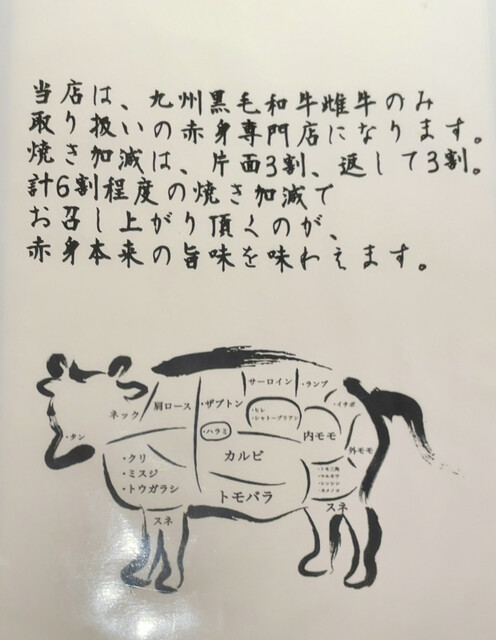 当店は、九州黒毛和牛雌牛のみ
取り扱いの赤身専門店になります。
焼き加減は、片面3割、返して3割。
計6割程度の焼き加減で
お召し上がり頂くのが、
赤身本来の旨味を味わえます。
サーロイン
・ランプ
ネック
肩ロース
・ザブトン
・ヒレ
・シャトーブリアン
・イチボ
・タン
・ハラミ
内モモ
外モモ
カルビ
・クリ
・ミスジ
・トウガラシ
・トモ三角
・マルカワ
・シンシン
・カメノコ
トモバラ
スネ
スネ